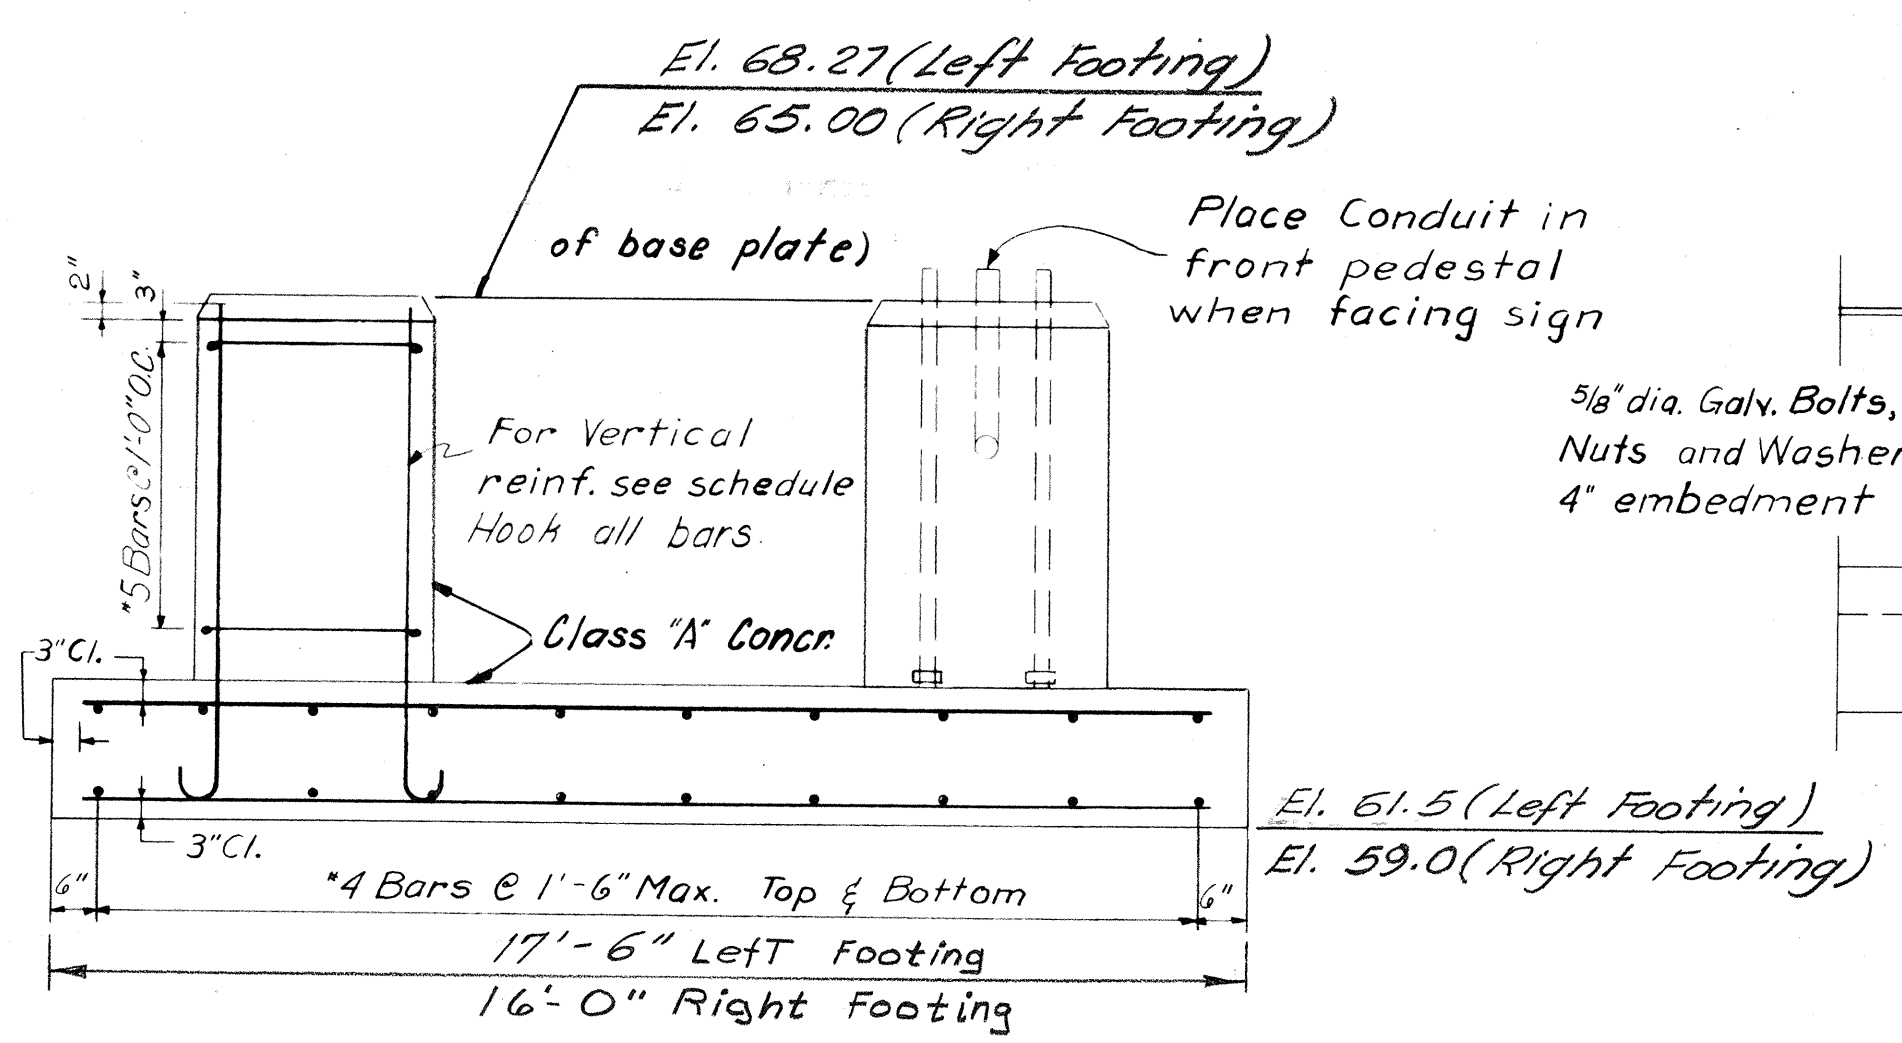 El. 68.27 (Left Footing)
El. 65.00 (Right Footing)
of base plate)
Place Conduit in
front pedestal
when facing sign
2"
3"
#5 Bars @ 1'-0" O.C.
For Vertical
reinf. see schedule
Hook all bars.
5/8" dia. Galv. Bolts,
Nuts and Washer
4" embedment
Class "A" Concr.
3" Cl.
3" Cl.
El. 61.5 (Left Footing)
El. 59.0 (Right Footing)
6"
#4 Bars @ 1'-6" Max. Top & Bottom
6"
17'-6" Left Footing
16'-0" Right Footing